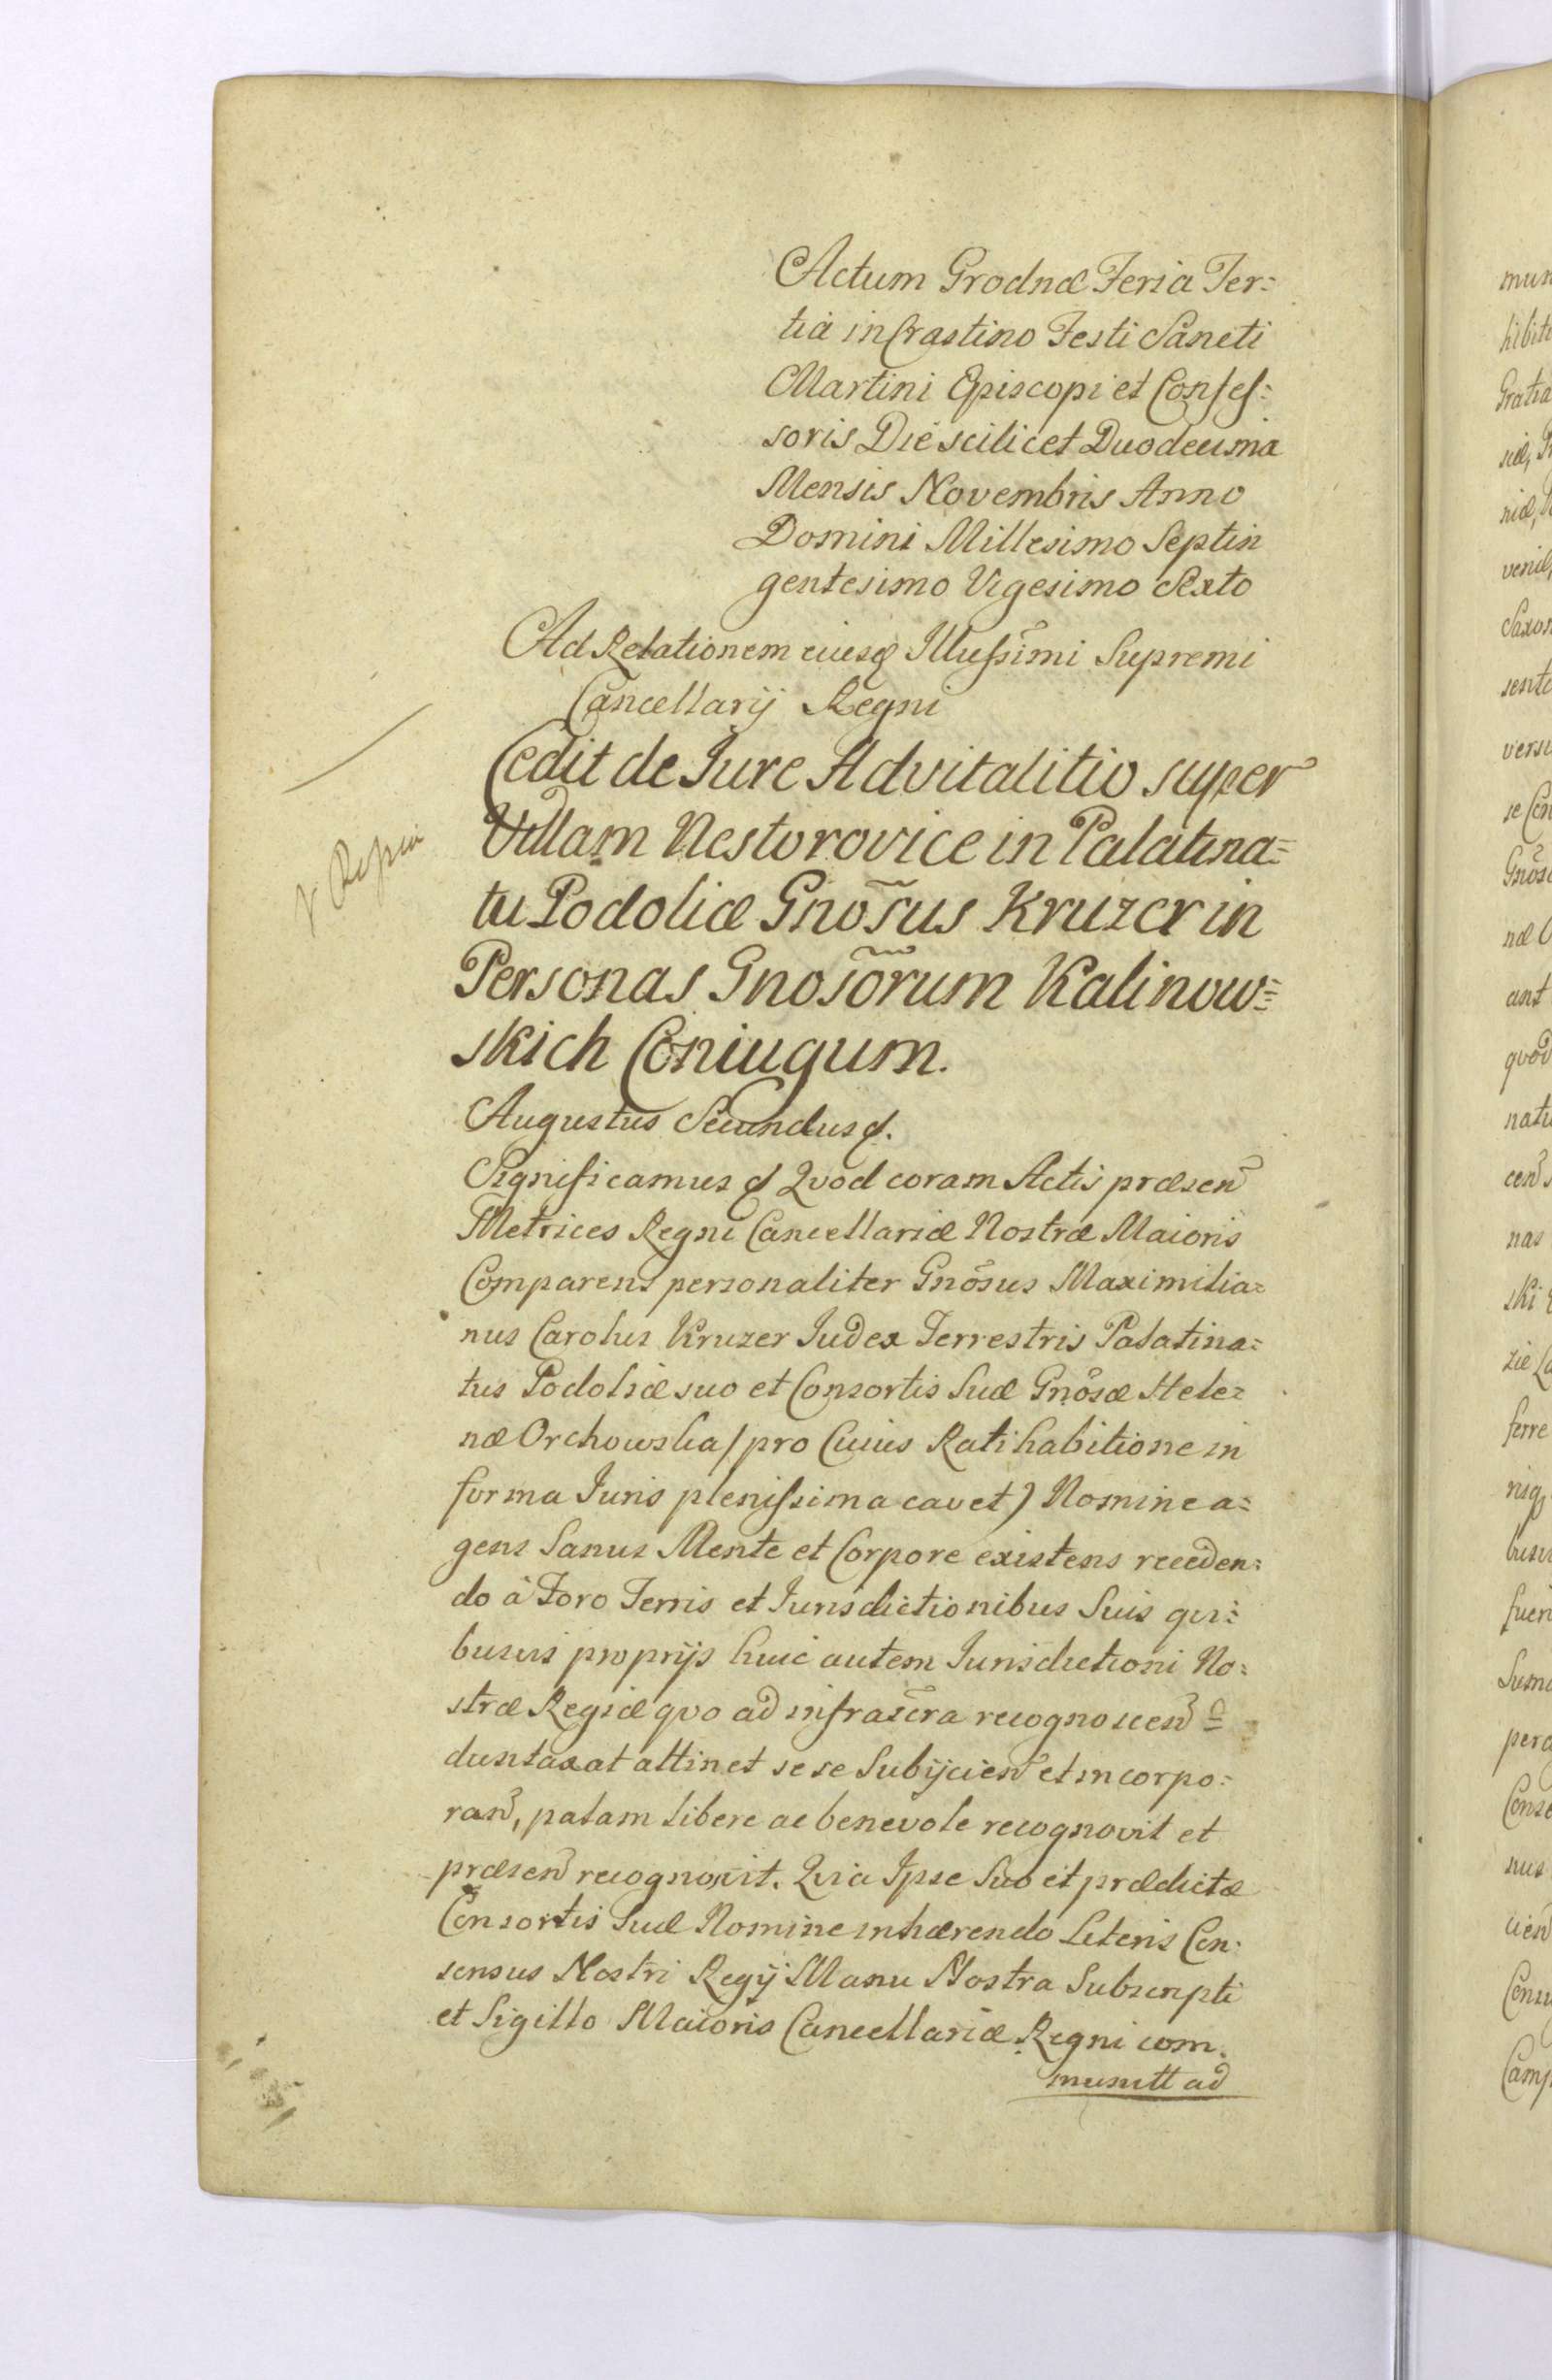 Actum Grodnæ Feria Ter=
tia in Crastino Festi Sancti
Martini Episcopi et Confes=
soris Die scilicet Duodecima
Mensis Novembris Anno
Domini Millesimo Septin
gentesimo Vigesimo Sexto
Ad Relationem eiusq Illussimi Supremi
Cancellarij Regni
Cedit de Jure Advitalitio super
Villam Nestorovice in Palatina=
tu Podoliæ Gnõsus Kruzer in
Personas Gnosõrum Kalinow=
skich Coniugum.
Augustus Secundus &.
Significamus & Quod coram Actis præsen
Metrices Regni Cancellariæ Nostræ Maioris
Comparens personaliter Gnõsus Maximilia=
nus Carolus Kruzer Iudex Terrestris Palatina=
tus Podoliæ suo et Consortis Suæ Gnõsæ Hele=
næ Orchowska /pro Cuius Ratihabitione in
forma Iuris plenissima cavet) Nomine a=
gens Sanus Mente et Corpore existens receden=
do à Foro Terris et Iurisdictionibus Suis qui=
busvis proprijs huic autem Iurisdictioni No=
stræ Regiæ quo ad infrascra recognoscen
duntaxat attinet sese Subijcien et incorpo=
ran, palam libere ac benevole recognovit et
præsen recognovit. Quia Ipse Suo et prædictæ
Consortis Suæ Nomine inhærendo Literis Con=
sensus Nostri Regij Manu Nostra Subscripti
et Sigillo Maioris Cancellariæ Regni com=
munitt ad